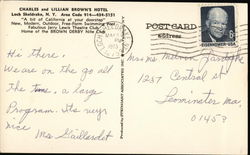 CHARLES and LILLIAN BROWN'S HOTEL
Loch Sheldrake, N. Y. Area Code 914-434-5151
"A bit of California at your doorstep"
New, Modern, Outdoor, Free-Form Swimming Pool
Fabulous Jerry Lewis Theatre Club
Home of the BROWN DERBY Nite Club
POST CARD
Address
EISENHOWER·USA
Hi there
We are on the go all
the time, a large
Program. Its very
nice
Mrs. Gaillardet
Mr + Mrs
1257 Central St
Leominster Ma;
01453